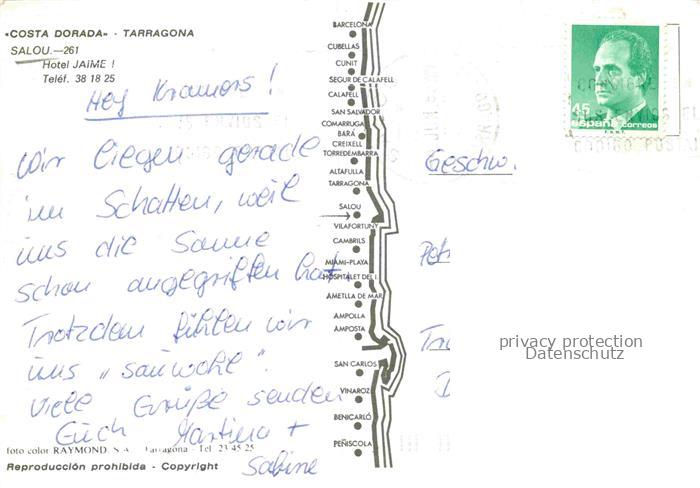 «COSTA DORADA» - TARRAGONA
SALOU.—261
Hotel JAIME I
Teléf. 38 18 25
Hey Kramers!
Wir liegen gerade
im Schatten, weil
uns die Sonne
schon angegriffen hat.
Trotzdem fühlen wir
uns „sauwohl".
Viele Grüße senden
Euch Martina +
Sabine
foto color RAYMOND, S. A. - Tarragona - Tel 23 45 25
Reproducción prohibida - Copyright
BARCELONA
CUBELLAS
CUNIT
SEGUR DE CALAFELL
CALAFELL
SAN SALVADOR
COMARRUGA
BARÁ
CREIXELL
TORREDEMBARRA
ALTAFULLA
TARRAGONA
SALOU
VILAFORTUNY
CAMBRILS
MIAMI-PLAYA
HOSPITALET DEL I.
AMETLLA DE MAR
AMPOLLA
AMPOSTA
SAN CARLOS
VINAROZ
BENICARLÓ
PEÑISCOLA
45
españa correos
Geschw.
privacy protection
Datenschutz